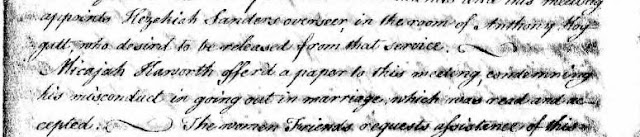 and this meeting
appoints Hezekiah Sanders overseer in the room of Anthony Hog
gatt, who desir'd to be released from that service.
Micajah Haworth offer'd a paper to this meeting condemning
his misconduct in going out in marriage, which was read and ac
cepted. The women Friends requests assistance of this